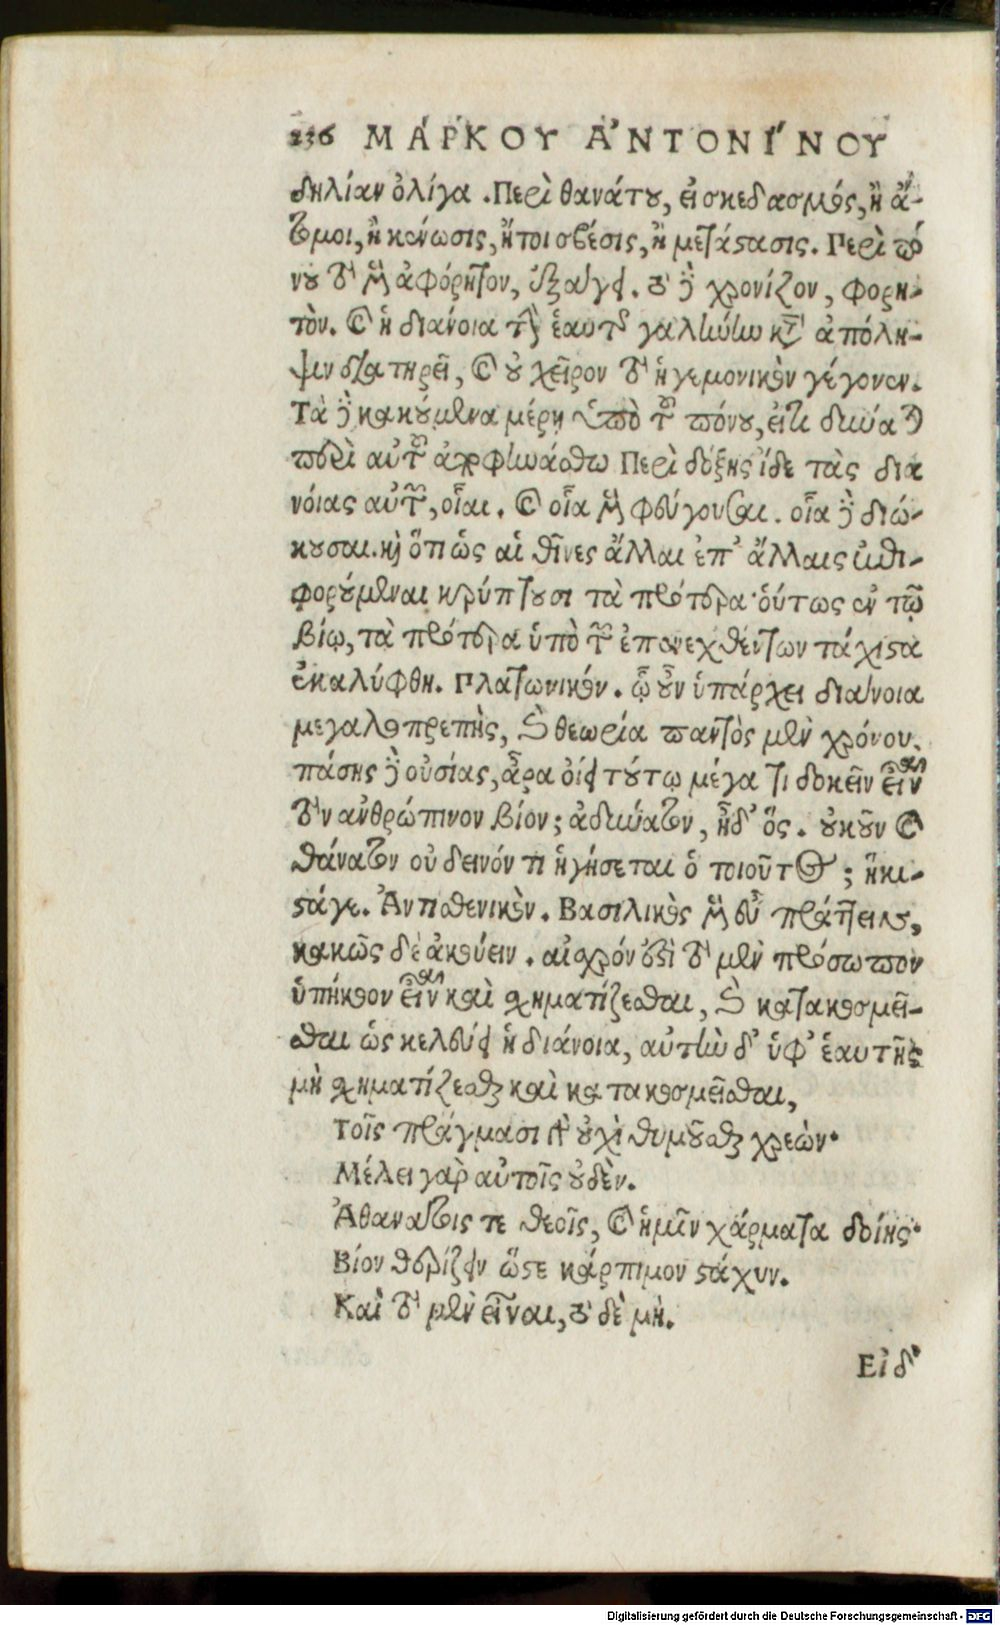 236 ΜΑΡΚΟΥ ἈΝΤΟΝΙΝΟΥ
δηλίαν ὀλίγα. Περὶ θανάτου, εἰ σκεδασμός, ἢ ἄ-
τομοι, ἢ κένωσις, ἤτοι σβέσις, ἢ μετάστασις. Περὶ πό
νου τὸ μὲν ἀφόρητον, ἐξάγει. τὸ δὲ χρονίζον, φορη-
τόν. καὶ ἡ διάνοια τὴν ἑαυτῆς γαλήνην κατὰ ἀπόλη-
ψιν διατηρεῖ, καὶ οὐ χεῖρον τὸ ἡγεμονικὸν γέγονεν.
Τὰ δὲ κακούμενα μέρη ὑπὸ τοῦ πόνου, εἴ τι δύναται
περὶ αὐτοῦ ἀποφηνάσθω Περὶ δόξης ἴδε τὰς δια
νοίας αὐτῶν, οἷαι. καὶ οἷα μὲν φεύγουσαι. οἷα δὲ διώ-
κουσαι. καὶ ὅτι ὡς αἱ θῖνες ἄλλαι ἐπ' ἄλλαις ἐπι-
φορούμεναι κρύπτουσι τὰ πρότερα· οὕτως ἐν τῷ
βίῳ, τὰ πρότερα ὑπὸ τῶν ἐπενεχθέντων τάχιστα
ἐκαλύφθη. Πλατωνικόν. ᾧ οὖν ὑπάρχει διάνοια
μεγαλοπρεπὴς, καὶ θεωρία παντὸς μὲν χρόνου.
πάσης δὲ οὐσίας, ἆρα οἴει τούτῳ μέγα τι δοκεῖν εἶναι
τὸν ἀνθρώπινον βίον; ἀδύνατον, ἦ δ' ὅς. οὐκοῦν καὶ
θάνατον οὐ δεινόν τι ἡγήσεται ὁ τοιοῦτος; ἥκι-
στά γε. Ἀντισθενικὸν. Βασιλικὸς μὲν εὖ πράττειν,
κακῶς δὲ ἀκούειν. αἰσχρόν ἐστι τὸ μὲν πρόσωπον
ὑπήκοον εἶναι καὶ σχηματίζεσθαι, καὶ κατακοσμεῖ-
σθαι ὡς κελεύει ἡ διάνοια, αὐτὴν δ' ὑφ' ἑαυτῆς
μὴ σχηματίζεσθαι καὶ κατακοσμεῖσθαι,
Τοῖς πράγμασι γὰρ οὐχὶ θυμοῦσθαι χρεών·
Μέλει γὰρ αὐτοῖς οὐδὲν.
Ἀθανάτοις τε θεοῖς, καὶ ἡμῖν χάρματα δοίης·
Βίον θερίζειν ὥστε κάρπιμον στάχυν.
Καὶ τὸ μὲν εἶναι, τὸ δὲ μὴ.
Εἰ δ'
Digitalisierung gefördert durch die Deutsche Forschungsgemeinschaft - DFG